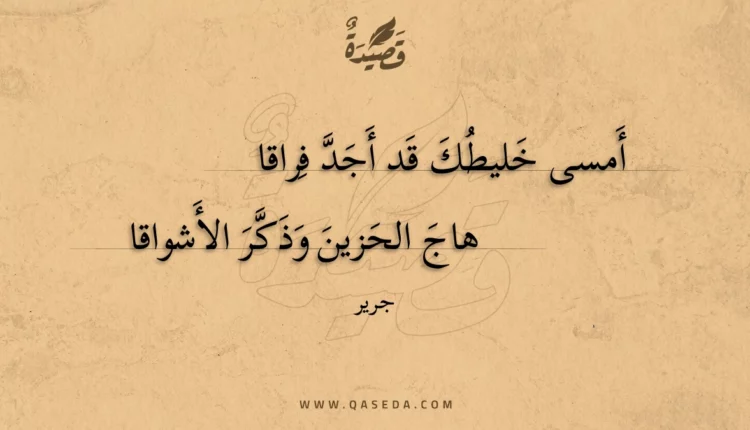 قَصِيدَةٌ
أَمسى خَليطُكَ قَد أَجَدَّ فِراقا
هاجَ الحَزينَ وَذَكَّرَ الأَشواقا
جرير
WWW.QASEDA.COM